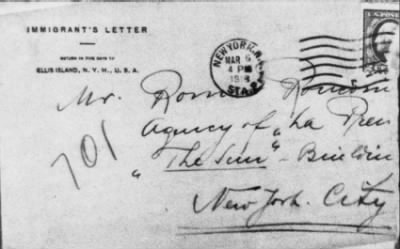 IMMIGRANT'S LETTER
RETURN IN FIVE DAYS TO
ELLIS ISLAND, N. Y. H., U. S. A.
NEW YORK, N.Y.
MAR 6
4 PM
STA. P
U.S. POSTAGE
Mr.
Agency of "La
"The Sun" - Buildin
New York. City
701